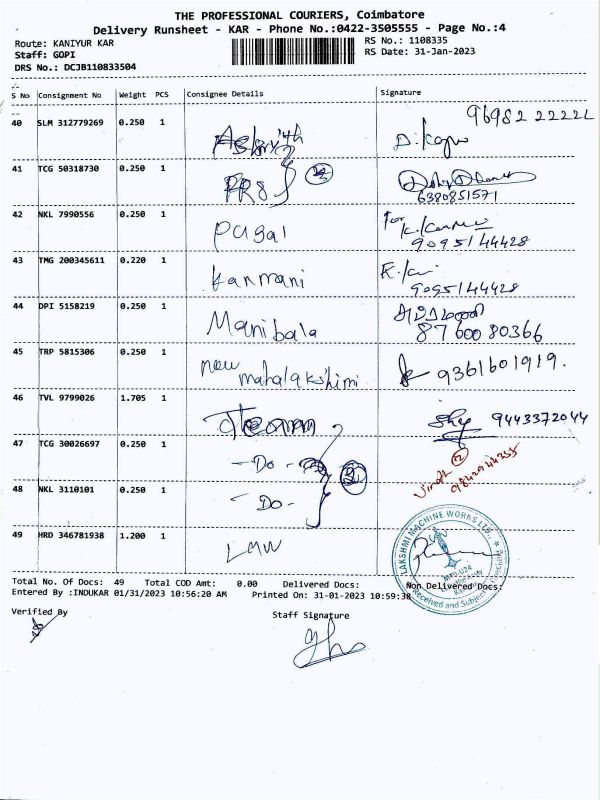 THE PROFESSIONAL COURIERS, Coimbatore
Delivery Runsheet - KAR - Phone No.:0422-3505555 - Page No.:4
Route: KANIYUR KAR
RS No.: 1108335
Staff: GOPI
RS Date: 31-Jan-2023
DRS No.: DCJB110833504
S No Consignment No Weight PCS Consignee Details Signature
40 SLM 312779269 0.250 1 96982 22222
41 TCG 50318730 0.250 1 PRS 6380851571
42 NKL 7990556 0.250 1 pugal for 9095144428
43 TMG 200345611 0.220 1 kanmani 9095144428
44 DPI 5158219 0.250 1 Manibala 8760080366
45 TRP 5815306 0.250 1 new mahalakshimi 9361601919.
46 TVL 9799026 1.705 1 9443372044
47 TCG 30026697 0.250 1 - Do -
48 NKL 3110101 0.250 1 - Do -
49 HRD 346781938 1.200 1 LMW
LAKSHMI MACHINE WORKS LTD.
Total No. Of Docs: 49 Total COD Amt: 0.00 Delivered Docs: Non Delivered Docs:
Entered By :INDUKAR 01/31/2023 10:56:20 AM Printed On: 31-01-2023 10:59:38
Verified By
Staff Signature